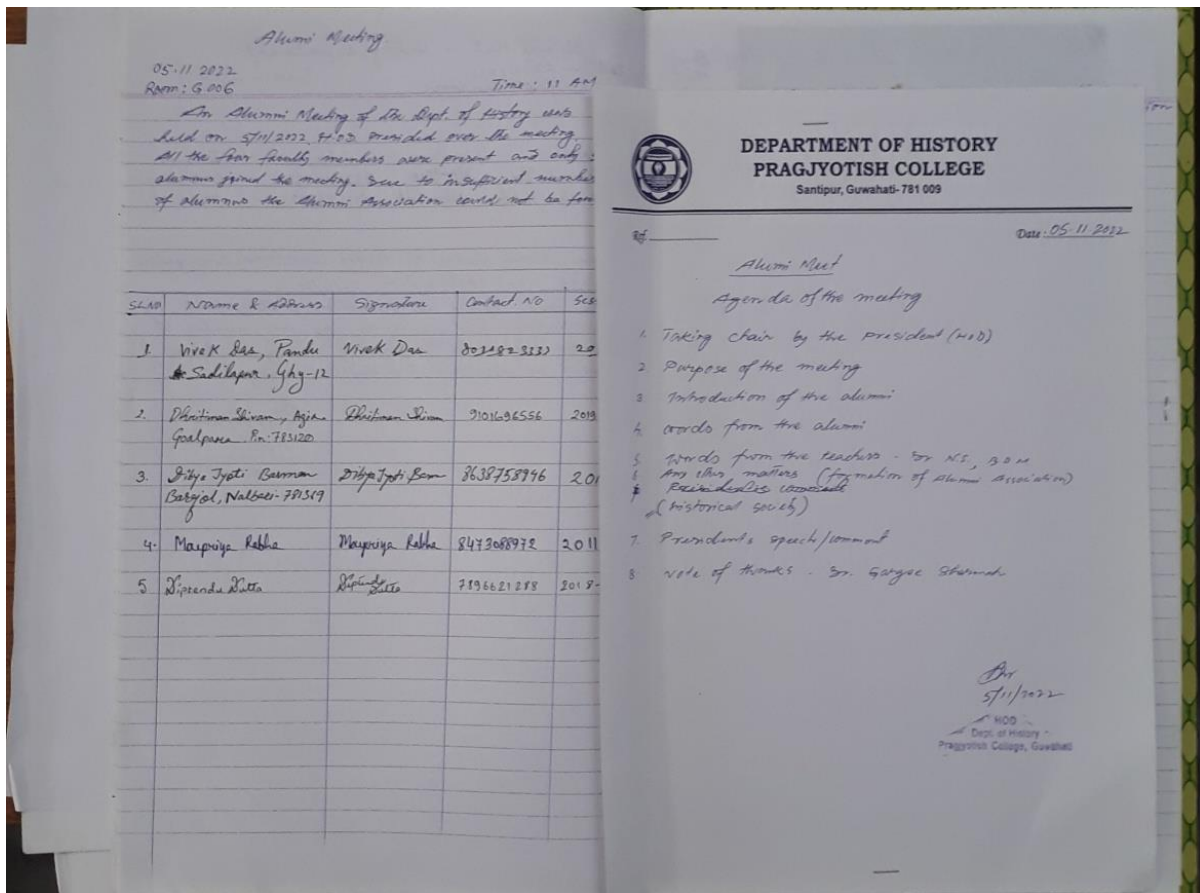 Alumni Meeting
05-11 2022
Room: G 006 Time: 11 AM
An Alumni Meeting of the Dept. of History was
held on 5/11/2022. HOD presided over the meeting.
All the four faculty members were present and only
alumnus joined the meeting. Due to insufficient number
of alumnus the Alumni Association could not be
SL.NO Name & Address Signature Contact. No
1. Vivek Das, Pandu Vivek Das
Sadilapur, Ghy-12
2. Dhritiman Shivam, Agia Dhritiman Shivam 9101696556 2019
Goalpara Pin: 783120
3. Dibya Jyoti Barman Dibya Jyoti Barman 8638758946 201
Nalbari-781319
4. Maupriya Rabha Maupriya Rabha 8473088972 2011
5 Diptendu Dutta Diptendu Dutta 7896621288 2018-
DEPARTMENT OF HISTORY
PRAGJYOTISH COLLEGE
Santipur, Guwahati- 781 009
Ref. Date: 05-11 2022
Alumni Meet
Agenda of the meeting
1. Taking chair by the president (HOD)
2. Purpose of the meeting
3 Introduction of the alumni
4. words from the alumni
5. Words from the teachers - Dr N.I, BDM
6 Any other matters (formation of Alumni Association)
(historical society)
7. President's speech/comment
8 Vote of thanks - Dr. Gargee Sharmah
5/11/2022
HOD
Dept. of History
Pragjyotish College, Guwahati